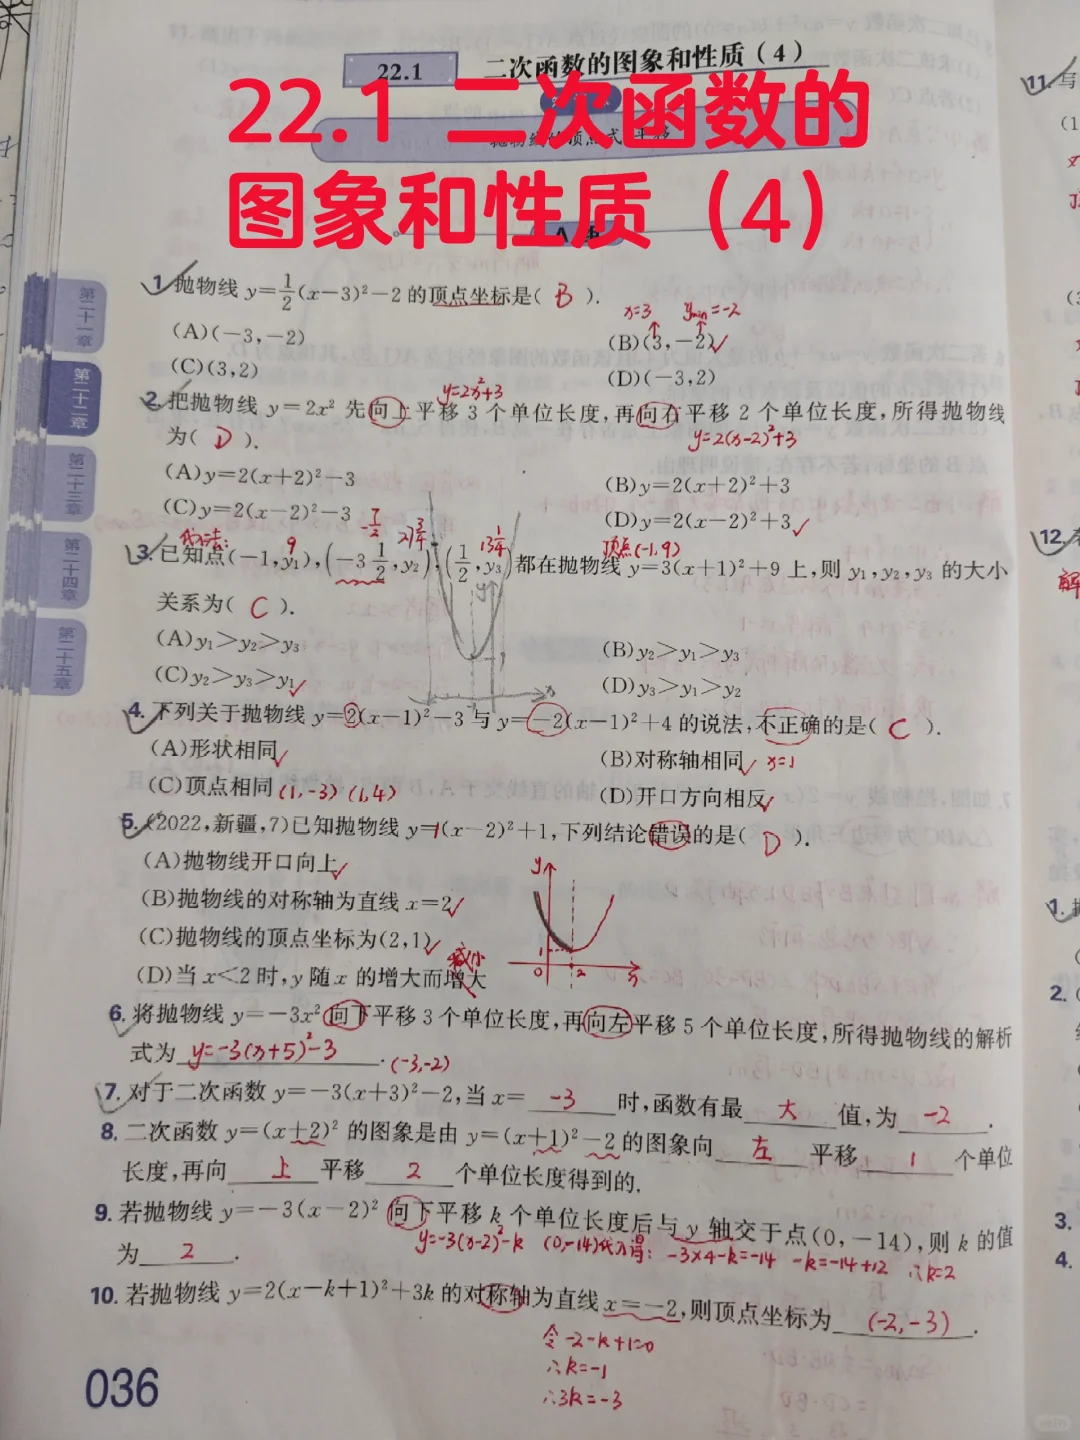 22.1 二次函数的图象和性质(4)
22.1 二次函数的
图象和性质(4)
1. 抛物线 y=1/2(x-3)²-2 的顶点坐标是( B ).
x=3 ymin=-2
(A)(-3,-2) (B)(3,-2)✓
(C)(3,2) (D)(-3,2)
y=2x²+3
2. 把抛物线 y=2x² 先向上平移 3 个单位长度,再向右平移 2 个单位长度,所得抛物线
为( D ). y=2(x-2)²+3
(A)y=2(x+2)²-3 (B)y=2(x+2)²+3
(C)y=2(x-2)²-3 (D)y=2(x-2)²+3✓
代入法: 9 -7/2 27 3/4 13 1/4 顶点(-1,9)
3. 已知点(-1,y₁),(-3 1/2,y₂),(1/2,y₃)都在抛物线 y=3(x+1)²+9 上,则 y₁,y₂,y₃ 的大小
关系为( C ).
(A)y₁>y₂>y₃ (B)y₂>y₁>y₃
(C)y₂>y₃>y₁✓ (D)y₃>y₁>y₂
y x
4. 下列关于抛物线 y=2(x-1)²-3 与 y=-2(x-1)²+4 的说法,不正确的是( C ).
(A)形状相同✓ (B)对称轴相同✓ x=1
(C)顶点相同 (1,-3) (1,4) (D)开口方向相反✓
5. (2022,新疆,7)已知抛物线 y=1(x-2)²+1,下列结论错误的是( D ).
(A)抛物线开口向上✓
(B)抛物线的对称轴为直线 x=2✓
(C)抛物线的顶点坐标为(2,1)✓
减小
(D)当 x<2 时,y 随 x 的增大而增大
y 1 0 2 x
6. 将抛物线 y=-3x² 向下平移 3 个单位长度,再向左平移 5 个单位长度,所得抛物线的解析
式为 y=-3(x+5)²-3 .
(-3,-2)
7. 对于二次函数 y=-3(x+3)²-2,当 x= -3 时,函数有最 大 值,为 -2 .
8. 二次函数 y=(x+2)² 的图象是由 y=(x+1)²-2 的图象向 左 平移 1 个单位
长度,再向 上 平移 2 个单位长度得到的.
9. 若抛物线 y=-3(x-2)² 向下平移 k 个单位长度后与 y 轴交于点(0,-14),则 k 的值
为 2 .
y=-3(x-2)²-k (0,-14)代入得: -3×4-k=-14 -k=-14+12 ∴k=2
10. 若抛物线 y=2(x-k+1)²+3k 的对称轴为直线 x=-2,则顶点坐标为 (-2,-3) .
令-2-k+1=0
∴k=-1
∴3k=-3
036
第二十一章
第二十二章
第二十三章
第二十四章
第二十五章
11. 写
12.
解
2.
3.
4.